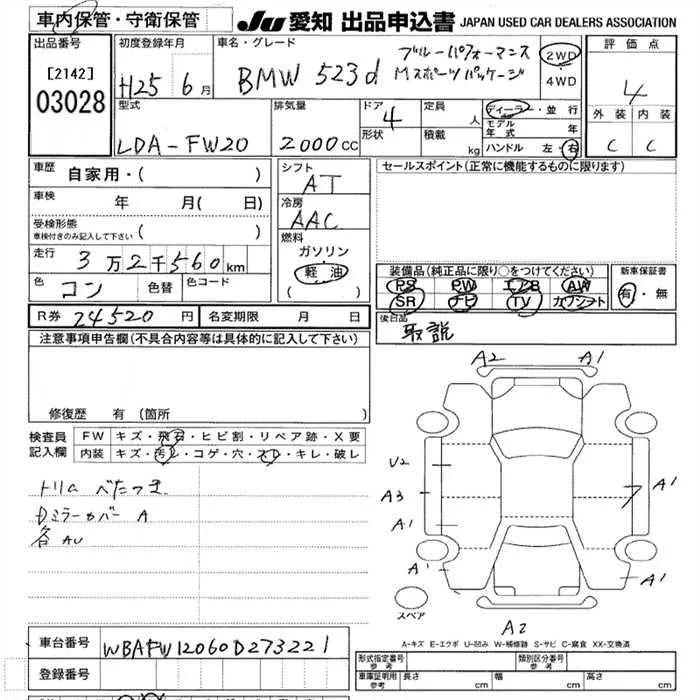 車内保管・守衛保管
JU 愛知 出品申込書 JAPAN USED CAR DEALERS ASSOCIATION
出品番号
[2142]
03028
初度登録年月
H25 6月
車名・グレード
BMW 523d
ブルーパフォーマンス
Mスポーツパッケージ
2WD
4WD
評価点
4
外装 内装
C C
型式
LDA-FW20
排気量
2000cc
ドア 4
形状
定員 人
積載 kg
ディーラー・並行
モデル年式 年
ハンドル 左・右
車歴 自家用・( )
車検 年 月( 日)
受検形態
車検付きのみ記入して下さい ( )
走行 3万2千560km
色 コン 色替 色コード
シフト
AT
冷房
AAC
燃料
ガソリン
軽油
( )
セールスポイント(正常に機能するものに限ります)
装備品(純正品に限り○をつけてください)
PS PW エアB AW
SR ナビ TV カワシート
新車保証書
有・無
R券 24520円 名変期限 月 日
後日品
取説
注意事項申告欄(不具合内容等は具体的に記入して下さい)
修復歴 有(箇所 )
検査員
記入欄
FW キズ・飛石・ヒビ割・リペア跡・X要
内装 キズ・汚レ・コゲ・穴・スレ・キレ・破レ
トリムべたつき
Dミラーカバー A
各AU
A2 A1
U2
A3
A1
A1
A1
A1
A2
スペア
A-キズ E-エクボ U-凹み W-補修跡 S-サビ C-腐食 XX-交換済
車台番号 WBAFW12060D273221
登録番号
型式指定番号
参考
類別区分番号
参考
車庫証明用
参考
長さ cm 幅 cm 高さ cm